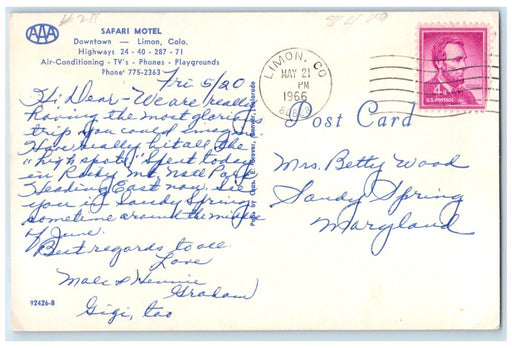 AAA
SAFARI MOTEL
Downtown — Limon, Colo.
Highways 24 - 40 - 287 - 71
Air-Conditioning - TV's - Phones - Playgrounds
Phone 775-2363
Fri 5/20
Hi Dear - We are really
having the most glorious
trip you could imagine
Have really hit all the
"high spots". Spent today
in Rocky Mt. Natl Park
Heading East now. See
you in Sandy Spring
sometime around the middle
of June.
Best regards to all.
Love
& Hennie
Graham
Gigi, too
92426-B
LIMON, CO
MAY 21
PM
1966
4¢
U.S. POSTAGE
Post Card
Mrs. Betty Wood
Sandy Spring
Maryland